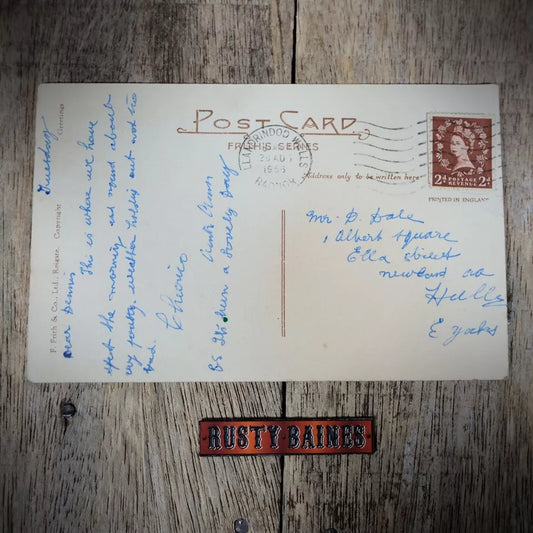 POST CARD
FRITH'S SERIES
LLANDRINDOD WELLS
RADNOR
1956
Address only to be written here
2d POSTAGE REVENUE 2d
PRINTED IN ENGLAND
Greetings
F. Frith & Co., Ltd., Reigate. Copyright
Tuesday
Dear Dennis
This is where we have
spent the morning
very pretty. weather holding out not too
bad.
PS It's been a lovely day
Mr. D. Dale
1 Albert Square
Ella Street
Newland Av
Hull
E Yorks
RUSTY·BAINES